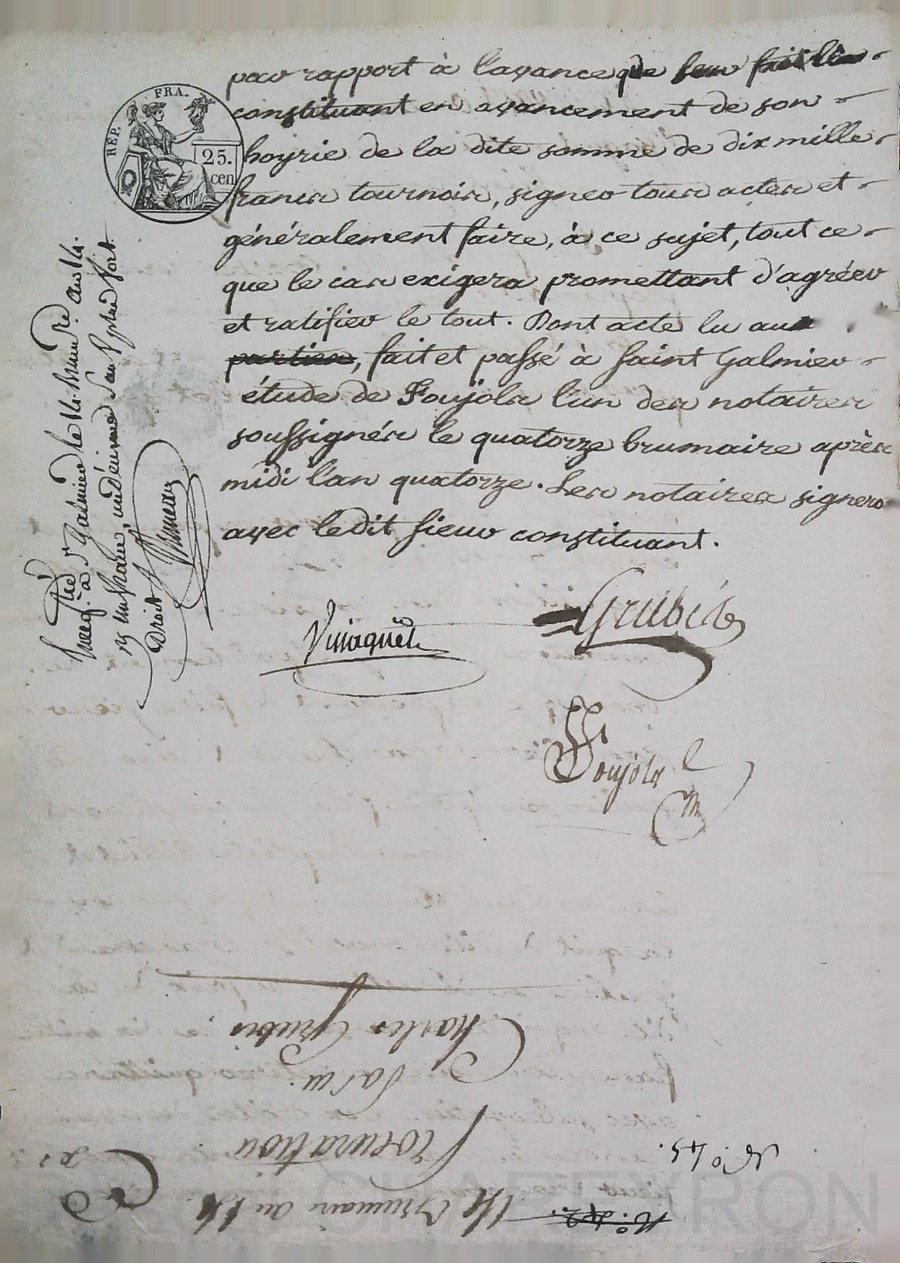 par rapport à l'avance que lui fait le
constituant en avancement de son
hoyrie de la dite somme de dix mille
francs tournois, signer tous actes et
généralement faire, à ce sujet, tout ce
que le cas exigera promettant d'agréer
et ratifier le tout. Dont acte lu aux
parties, fait et passé à Saint Galmier
étude de Foujols l'un des notaires
soussignés le quatorze brumaire après
midi l'an quatorze. Les notaires signero
avec ledit sieur constituant.
RÉP. FRA.
25.
cen
à St Galmier le 14 brum.re an 14.
Droit
Grubis
Foujols
N.o 45.
N.o 42.
14 Brumair an 14
Procuration
par m.
Charles Grubis
CHAPEYRON